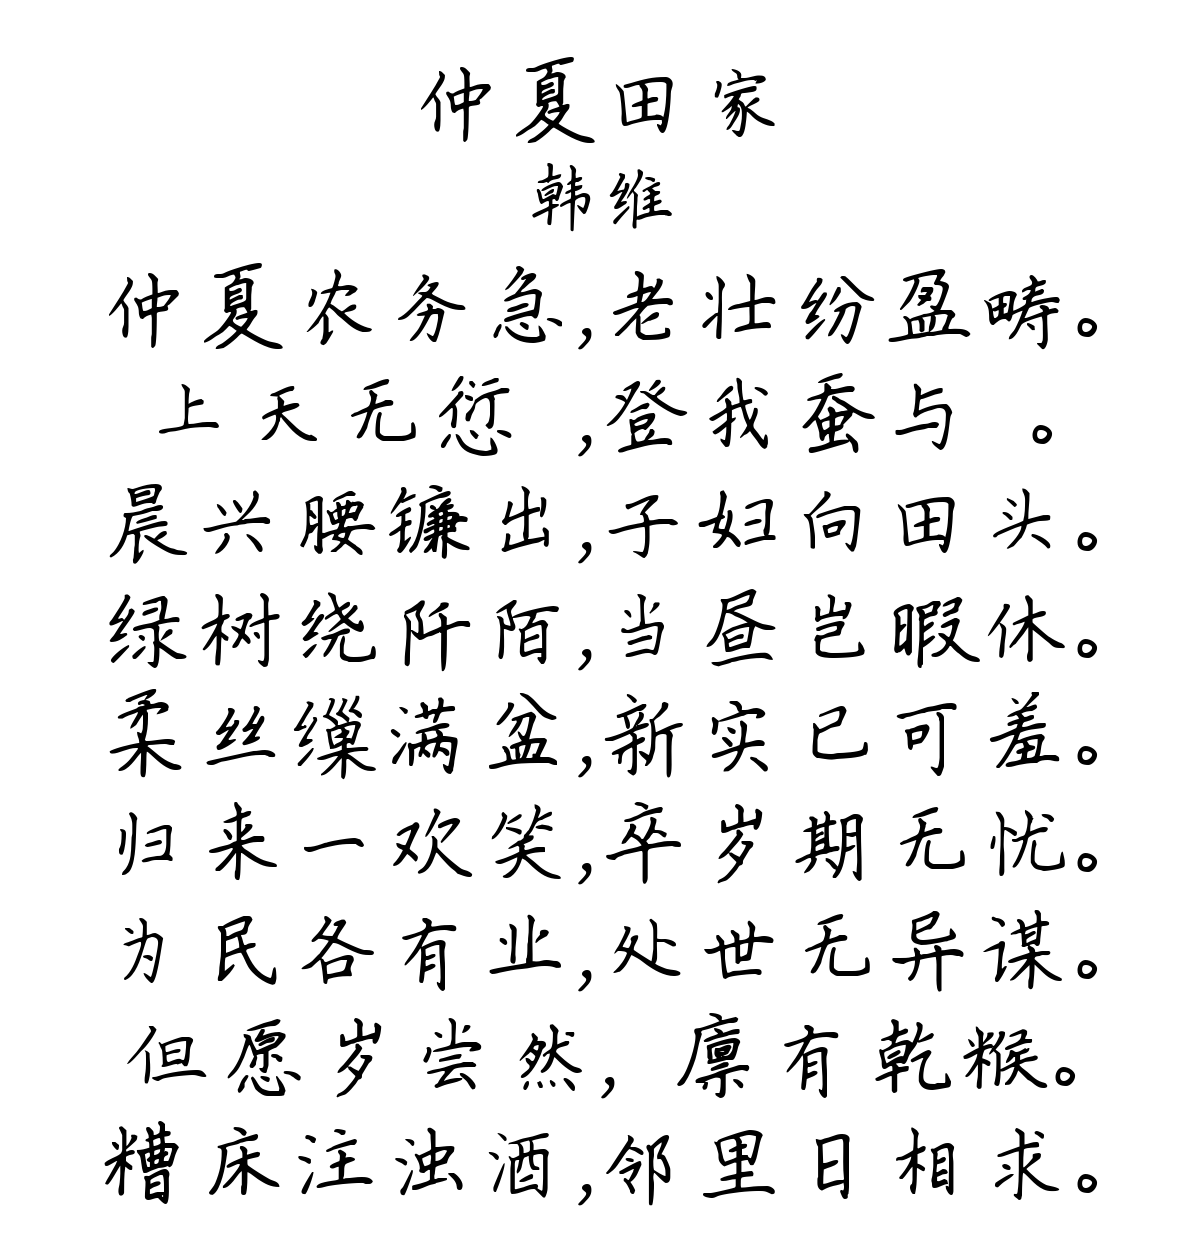 仲夏田家
韩维
仲夏农务急,老壮纷盈畴。
上天无愆 ,登我蚕与 。
晨兴腰镰出,子妇向田头。
绿树绕阡陌,当昼岂暇休。
柔丝缫满盆,新实已可羞。
归来一欢笑,卒岁期无忧。
为民各有业,处世无异谋。
但愿岁尝然，廪有乾糇。
糟床注浊酒,邻里日相求。